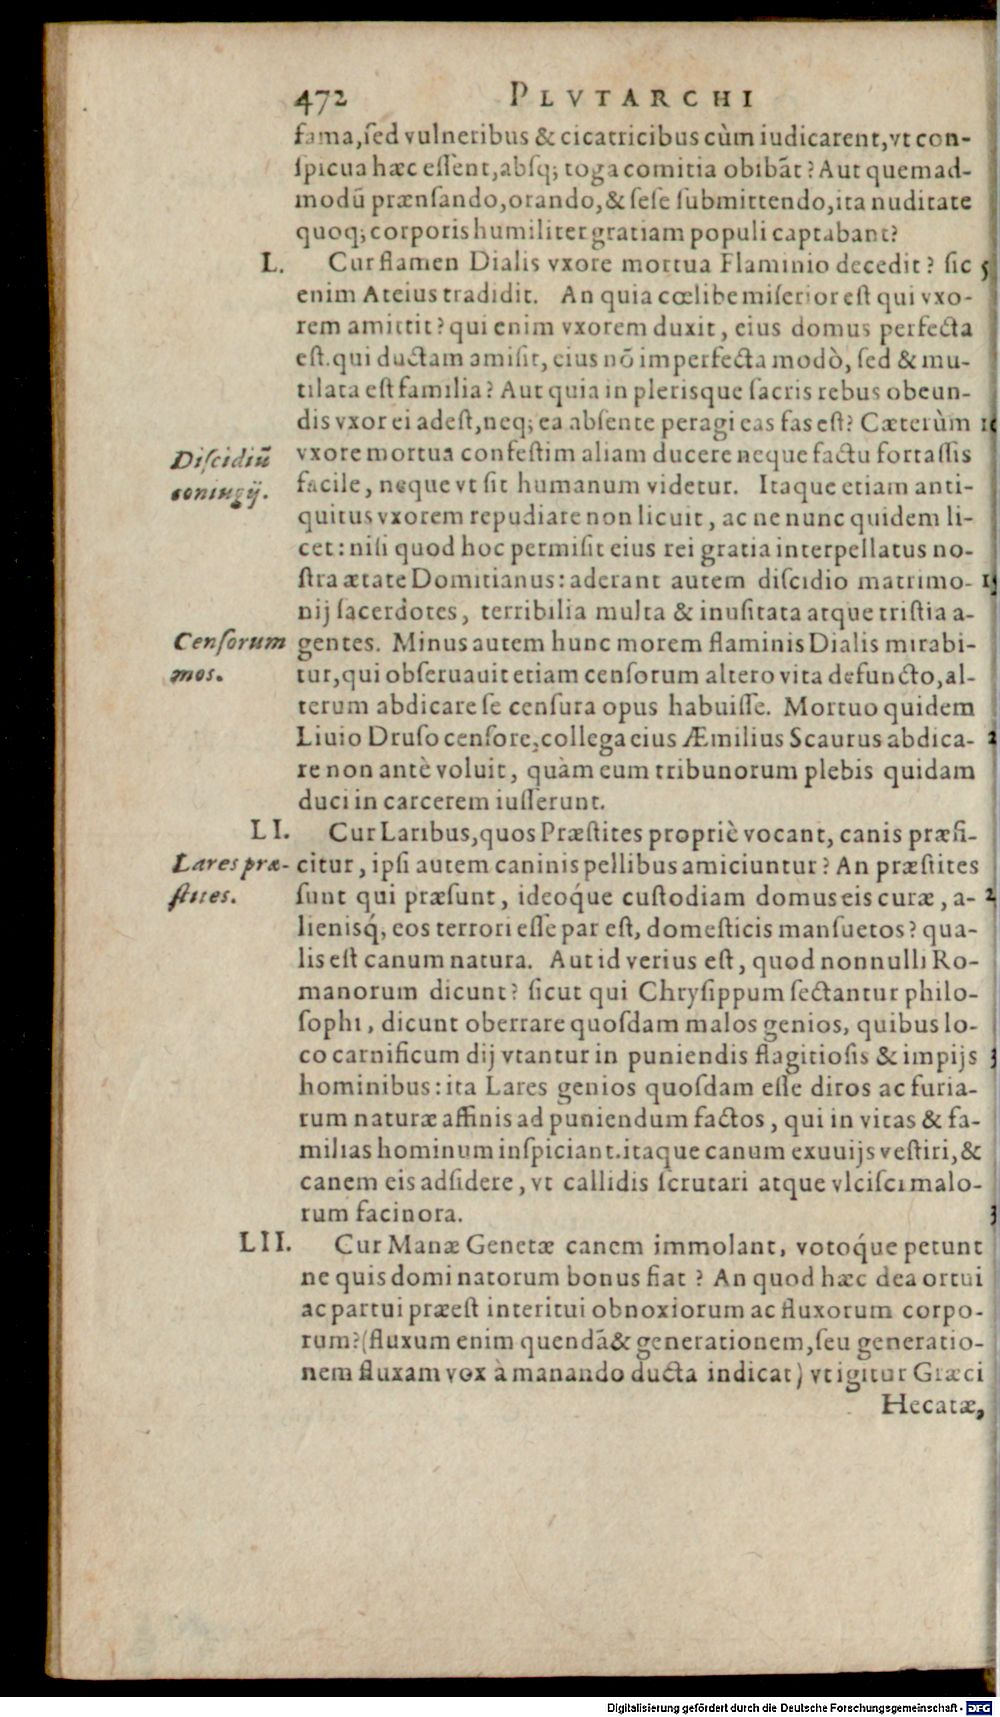 472 PLVTARCHI
fama,ſed vulneribus & cicatricibus cùm iudicarent,vt con-
ſpicua hæc eſſent,abſq; toga comitia obibãt? Aut quemad-
modũ prænſando,orando,& ſeſe ſubmittendo,ita nuditate
quoq; corporis humiliter gratiam populi captabant?
L. Cur flamen Dialis vxore mortua Flaminio decedit? ſic 5
enim Ateius tradidit. An quia cœlibe miſerior eſt qui vxo-
rem amittit? qui enim vxorem duxit, eius domus perfecta
eſt.qui ductam amiſit, eius nõ imperfecta modò, ſed & mu-
tilata eſt familia? Aut quia in plerisque ſacris rebus obeun-
dis vxor ei adeſt,neq; ea abſente peragi eas fas eſt? Cæterùm
Diſcidiũ
coniugij.
vxore mortua confeſtim aliam ducere neque factu fortaſſis
facile, neque vt ſit humanum videtur. Itaque etiam anti-
quitus vxorem repudiare non licuit, ac ne nunc quidem li-
cet: niſi quod hoc permiſit eius rei gratia interpellatus no-
ſtra ætate Domitianus: aderant autem diſcidio matrimo-
nij ſacerdotes, terribilia multa & inuſitata atque triſtia a-
Cenſorum
mos.
gentes. Minus autem hunc morem flaminis Dialis mirabi-
tur,qui obſeruauit etiam cenſorum altero vita defuncto,al-
terum abdicare ſe cenſura opus habuiſſe. Mortuo quidem
Liuio Druſo cenſore,collega eius Æmilius Scaurus abdica-
re non antè voluit, quàm eum tribunorum plebis quidam
duci in carcerem iuſſerunt.
LI. Cur Laribus,quos Præſtites propriè vocant, canis præfi-
Lares præ-
ſtites.
citur, ipſi autem caninis pellibus amiciuntur? An præſtites
ſunt qui præſunt, ideóque cuſtodiam domus eis curæ, a-
lienisq́; eos terrori eſſe par eſt, domeſticis manſuetos? qua-
lis eſt canum natura. Aut id verius eſt, quod nonnulli Ro-
manorum dicunt? ſicut qui Chryſippum ſectantur philo-
ſophi, dicunt oberrare quoſdam malos genios, quibus lo-
co carnificum dij vtantur in puniendis flagitioſis & impijs
hominibus: ita Lares genios quoſdam eſſe diros ac furia-
rum naturæ affinis ad puniendum factos, qui in vitas & fa-
milias hominum inſpiciant.itaque canum exuuijs veſtiri,&
canem eis adſidere, vt callidis ſcrutari atque vlciſci malo-
rum facinora.
LII. Cur Manæ Genetæ canem immolant, votóque petunt
ne quis domi natorum bonus fiat? An quod hæc dea ortui
ac partui præeſt interitui obnoxiorum ac fluxorum corpo-
rum?(fluxum enim quendã & generationem,ſeu generatio-
nem fluxam vox à manando ducta indicat) vt igitur Græci
Hecatæ,
Digitalisierung gefördert durch die Deutsche Forschungsgemeinschaft - DFG